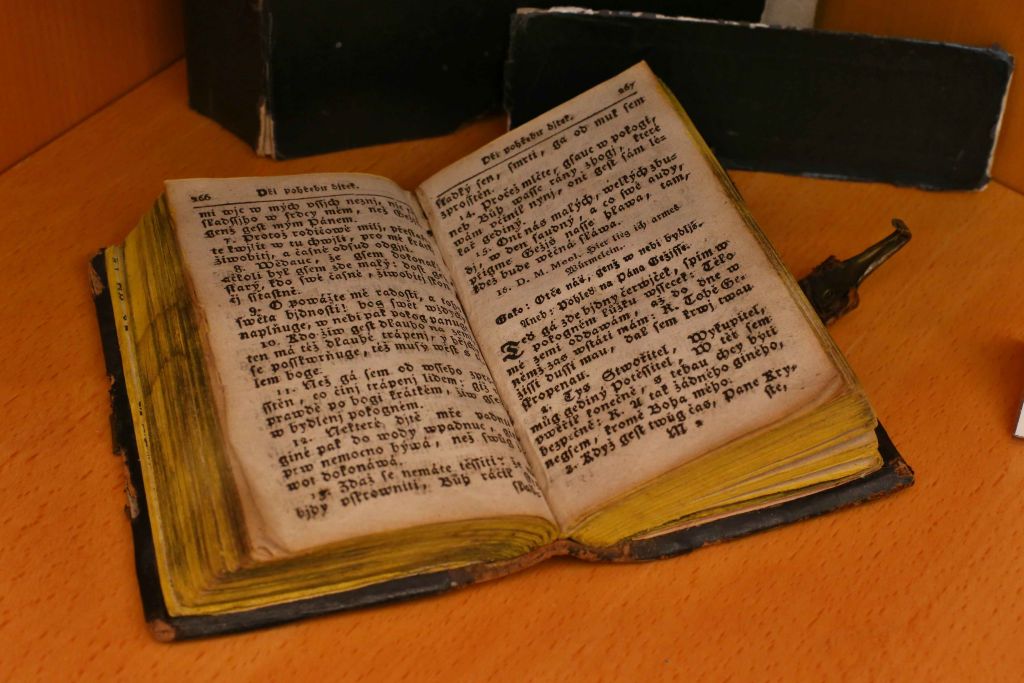 266 Při pohřebu dítek.
mi wjc w mých vssjch neznj, nic
sladssjho w srdcy mém, než
Genž gest mým Pánem.
7. Protož rodičowé milj,
te kwjliti w tu chwjli, pro mé krátké
žiwobitj, a časné odsud odgitj.
8. Wědauc, že gsem dokonal
ačkoli byl gsem zde malý: dosti
starý, kdo swé časné, žiwobitj
ěj sstastně.
9. O powažte mé radosti, a
swěta bjdnosti! bog swět wždy
naplňuge, w nebi pak pokog panuge.
10. Kdo žiw gest dlauho na
ten má též dlauhé trápenj, y
se posskwrňuge, též musý wést s
lem boge.
11. Než gá sem od wsseho
sstěn, co činj trápenj lidem;
prawdě po bogi krátkém, žiw
w bydlenj pokogném.
12. Některé djtě mře
giné pak do wody wpadnuc,
prw nemocno býwá, než swůg
wot dokonáwá.
13. Zdaž se nemáte těssiti,
bjdy vskrowniti, Bůh ráčil
Při pohřebu dítek. 267
sladký sen, smrti, gá od muk sem
zprosstěn.
14. Pročež mlčte, gsauc w pokogi,
neb Bůh wasse rány zhogj, které
wám učinil nynj, onť gest sám lé-
kař gediný.
15. Onť nás malých, welkých zbu-
dj, w den saudný, a co swé audy,
přigme Gežjs nasse hlawa, tam,
kdež bude wěčná sláwa,
16. D. M. Mool. Hier lieg ich armes
Würmelein.
Gako: Otče náš, genž w nebi bydljš.
Aneb: Pohleď na Pána Gežjsse.
Teď gá zde bjdný červjček, spjm w
pokogném lůžku wssecek: Tělo
mé zemi oddáwám, až do dne w
němž zas wstáti mám: K. Tobě Ge-
žjssi dussi mau, dals sem krwj twau
skropenau.
2. Tys Stwořitel, Wykupitel,
můg gediný Potěssitel, W tě sem
pwěřil konečně, s tebau chcy býti
bezpečně: K. A tak žádného giného,
negsem, kromě Boha mého.
3. Když gest twůg čas, Pane Kry,
M 2 ste,